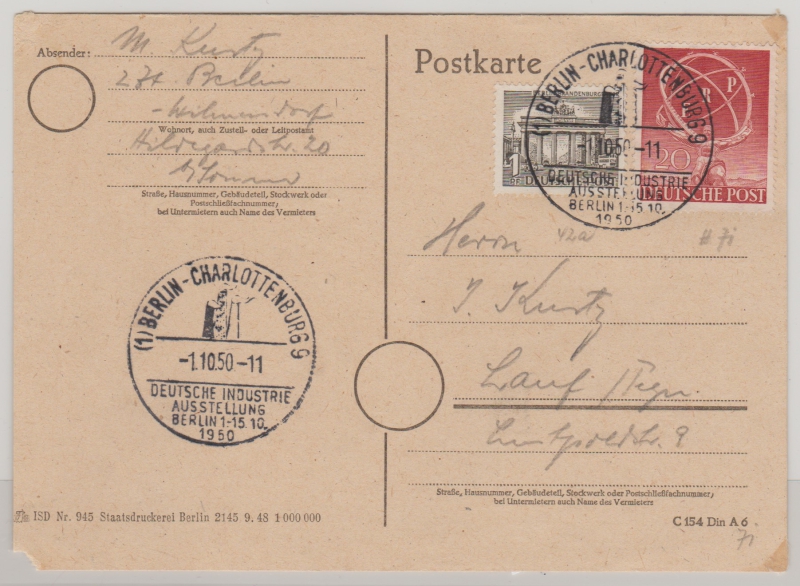 Absender: M. Kurtz
27a Berlin
-Wilmersdorf
Wohnort, auch Zustell- oder Leitpostamt
Hildegardstr. 20
Straße, Hausnummer, Gebäudeteil, Stockwerk oder
Postschließfachnummer;
bei Untermietern auch Name des Vermieters
Postkarte
BRANDENBURG
1
DEUTSCHE POST
ERP
20
DEUTSCHE POST
(1) BERLIN-CHARLOTTENBURG 9
-1.10.50.-11
DEUTSCHE INDUSTRIE
AUSSTELLUNG
BERLIN 1.-15.10.
1950
Herrn
42a
# 71
J. Kurtz
Lauf /Pegn.
Luitpoldstr. 9
Straße, Hausnummer, Gebäudeteil, Stockwerk oder Postschließfachnummer;
bei Untermietern auch Name des Vermieters
C 154 Din A 6
71
(1) BERLIN-CHARLOTTENBURG 9
-1.10.50.-11
DEUTSCHE INDUSTRIE
AUSSTELLUNG
BERLIN 1.-15.10.
1950
ISD Nr. 945 Staatsdruckerei Berlin 2145 9. 48 1 000 000